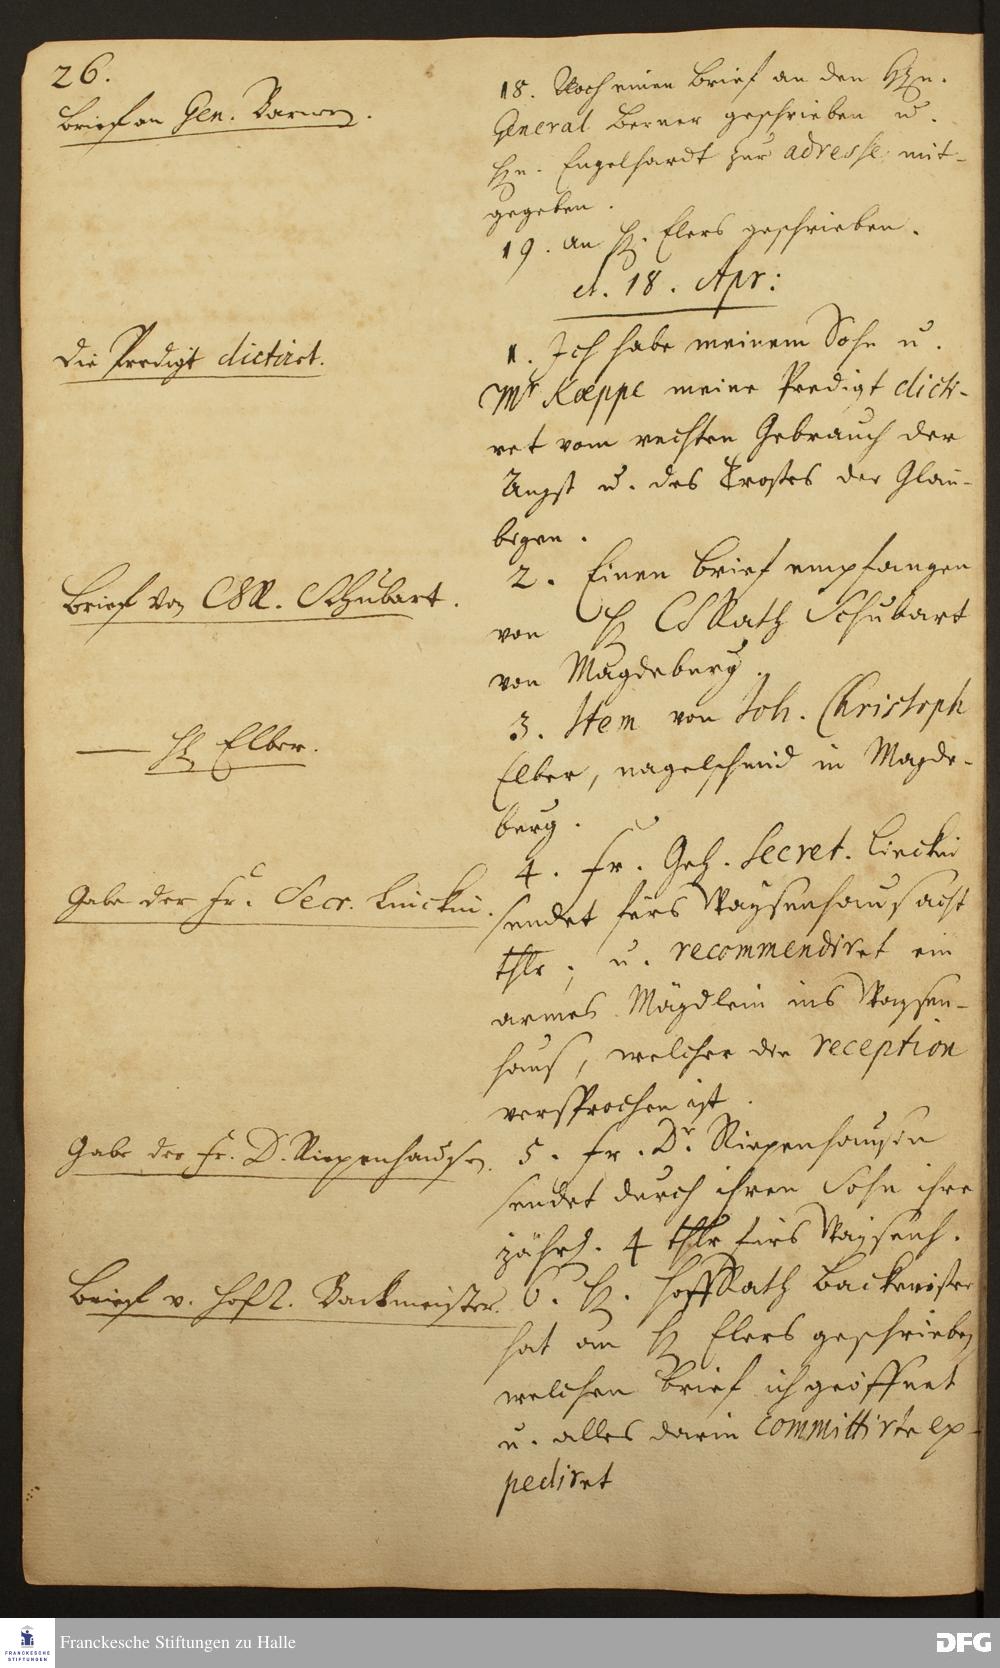 26.
Brief an Gen. Barner.
18. Noch einen Brief an den Hrn.
General Berner geschrieben u.
Hn. Engelhardt zur adresse mit-
gegeben.
19. an H. Elers geschrieben.
d. 18. Apr:
Die Predigt dictiret.
1. Ich habe meinem Sohn u.
Mr Kœppe meine Predigt dicti-
ret vom rechten Gebrauch der
Angst u. des Trostes der Gläu-
bigen.
Brief von CSR. Schubart.
2. Einen Brief empfangen
von H CSRath Schubart
von Magdeburg.
— H Elber.
3. Item von Joh. Christoph
Elber, nagelschmid in Magde-
burg.
Gabe der Fr. Secr. Linckin.
4. Fr. Geh. Secret. Linckin
sendet fürs Waysenhaus acht
thlr; u. recommendiret ein
armes Mägdlein ins Waysen-
haus, welcher die reception
versprochen ist.
Gabe der Fr. D. Riepenhausen.
5. Fr. Dr. Riepenhausin
sendet durch ihren Sohn ihre
jährl. 4 thlr fürs Waysenh.
Brief v. Hofr. Backmeister.
6. H. HoffRath Backmeister
hat an H Elers geschrieben
welchen Brief ich geöffnet
u. alles darin committirte ex-
pediret
FRANCKESCHE
STIFTUNGEN
Franckesche Stiftungen zu Halle
DFG